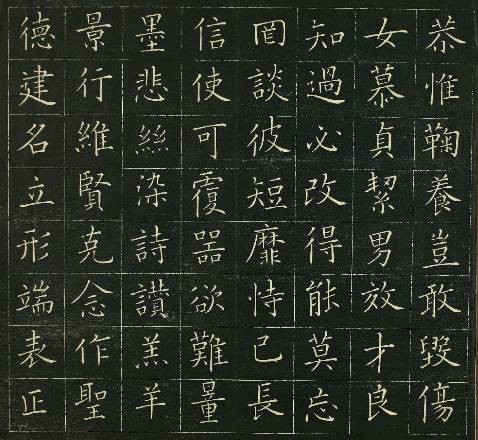 恭惟鞠養豈敢毀傷
女慕貞絜男效才良
知過必改得能莫忘
罔談彼短靡恃己長
信使可覆器欲難量
墨悲絲染詩讃羔羊
景行維賢克念作聖
德建名立形端表正